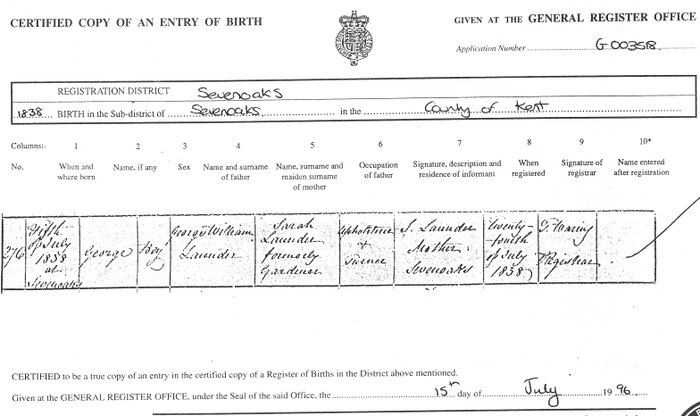 CERTIFIED COPY OF AN ENTRY OF BIRTH
GIVEN AT THE GENERAL REGISTER OFFICE
Application Number G003518
REGISTRATION DISTRICT Sevenoaks
1838 BIRTH in the Sub-district of Sevenoaks in the County of Kent
Columns:- 1 2 3 4 5 6 7 8 9 10*
No. When and where born Name, if any Sex Name and surname of father Name, surname and maiden surname of mother Occupation of father Signature, description and residence of informant When registered Signature of registrar Name entered after registration
276
Fifth
of July
1838
at
Sevenoaks
George
Boy
George William
Launder
Sarah
Launder
formerly
Gardener
Upholsterer
+
S. Launder
Mother
Sevenoaks
Twenty-
fourth
of July
1838
Registrar
CERTIFIED to be a true copy of an entry in the certified copy of a Register of Births in the District above mentioned.
Given at the GENERAL REGISTER OFFICE, under the Seal of the said Office, the 15th day of July 1996